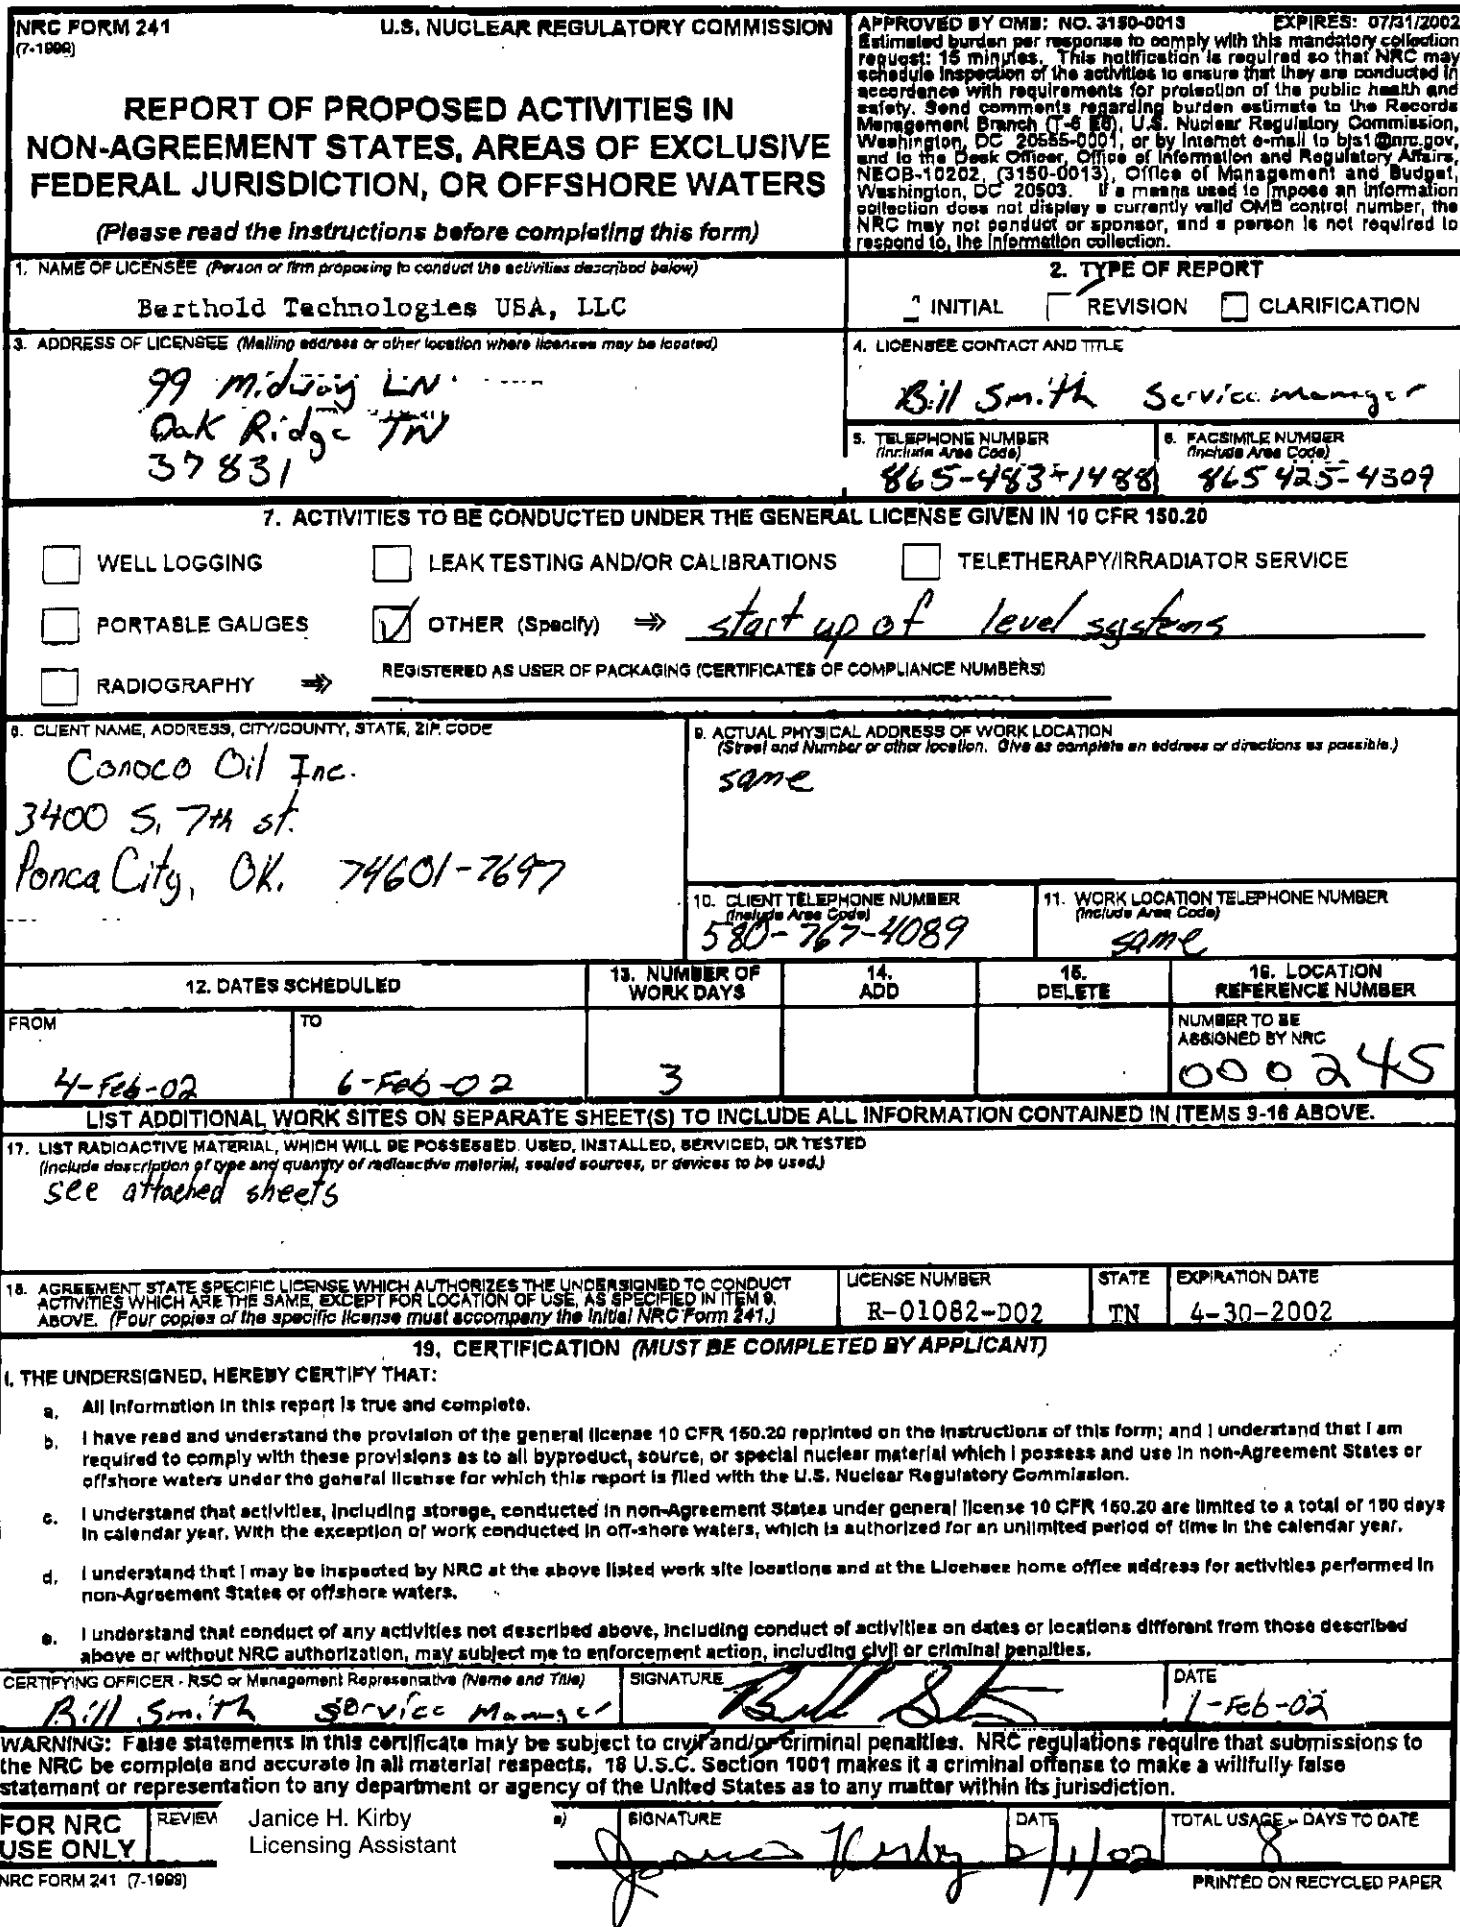 NRC FORM 241
(7-1999)
U.S. NUCLEAR REGULATORY COMMISSION
REPORT OF PROPOSED ACTIVITIES IN
NON-AGREEMENT STATES, AREAS OF EXCLUSIVE
FEDERAL JURISDICTION, OR OFFSHORE WATERS
(Please read the instructions before completing this form)
APPROVED BY OMB: NO. 3150-0013 EXPIRES: 07/31/2002
Estimated burden per response to comply with this mandatory collection
request: 15 minutes. This notification is required so that NRC may
schedule inspection of the activities to ensure that they are conducted in
accordance with requirements for protection of the public health and
safety. Send comments regarding burden estimate to the Records
Management Branch (T-6 E6), U.S. Nuclear Regulatory Commission,
Washington, DC 20555-0001, or by Internet e-mail to bjs1@nrc.gov,
and to the Desk Officer, Office of Information and Regulatory Affairs,
NEOB-10202, (3150-0013), Office of Management and Budget,
Washington, DC 20503. If a means used to impose an information
collection does not display a currently valid OMB control number, the
NRC may not conduct or sponsor, and a person is not required to
respond to, the information collection.
1. NAME OF LICENSEE (Person or firm proposing to conduct the activities described below)
Berthold Technologies USA, LLC
2. TYPE OF REPORT
INITIAL REVISION CLARIFICATION
3. ADDRESS OF LICENSEE (Mailing address or other location where licensee may be located)
99 Midway LN
Oak Ridge TN
37831
4. LICENSEE CONTACT AND TITLE
Bill Smith Service Manager
5. TELEPHONE NUMBER
(Include Area Code)
865-483-1488
6. FACSIMILE NUMBER
(Include Area Code)
865 425-4309
7. ACTIVITIES TO BE CONDUCTED UNDER THE GENERAL LICENSE GIVEN IN 10 CFR 150.20
WELL LOGGING LEAK TESTING AND/OR CALIBRATIONS TELETHERAPY/IRRADIATOR SERVICE
PORTABLE GAUGES OTHER (Specify) ⇒ start up of level systems
RADIOGRAPHY ⇒ REGISTERED AS USER OF PACKAGING (CERTIFICATES OF COMPLIANCE NUMBERS)
8. CLIENT NAME, ADDRESS, CITY/COUNTY, STATE, ZIP CODE
Conoco Oil Inc.
3400 S. 7th st.
Ponca City, OK. 74601-7697
9. ACTUAL PHYSICAL ADDRESS OF WORK LOCATION
(Street and Number or other location. Give as complete an address or directions as possible.)
same
10. CLIENT TELEPHONE NUMBER
(Include Area Code)
580-767-4089
11. WORK LOCATION TELEPHONE NUMBER
(Include Area Code)
same
12. DATES SCHEDULED
13. NUMBER OF
WORK DAYS
14.
ADD
15.
DELETE
16. LOCATION
REFERENCE NUMBER
FROM
4-Feb-02
TO
6-Feb-02
3
NUMBER TO BE
ASSIGNED BY NRC
000245
LIST ADDITIONAL WORK SITES ON SEPARATE SHEET(S) TO INCLUDE ALL INFORMATION CONTAINED IN ITEMS 9-16 ABOVE.
17. LIST RADIOACTIVE MATERIAL, WHICH WILL BE POSSESSED, USED, INSTALLED, SERVICED, OR TESTED
(Include description of type and quantity of radioactive material, sealed sources, or devices to be used.)
see attached sheets
18. AGREEMENT STATE SPECIFIC LICENSE WHICH AUTHORIZES THE UNDERSIGNED TO CONDUCT
ACTIVITIES WHICH ARE THE SAME, EXCEPT FOR LOCATION OF USE, AS SPECIFIED IN ITEM 9,
ABOVE. (Four copies of the specific license must accompany the initial NRC Form 241.)
LICENSE NUMBER
R-01082-D02
STATE
TN
EXPIRATION DATE
4-30-2002
19. CERTIFICATION (MUST BE COMPLETED BY APPLICANT)
I, THE UNDERSIGNED, HEREBY CERTIFY THAT:
a. All information in this report is true and complete.
b. I have read and understand the provision of the general license 10 CFR 150.20 reprinted on the instructions of this form; and I understand that I am
required to comply with these provisions as to all byproduct, source, or special nuclear material which I possess and use in non-Agreement States or
offshore waters under the general license for which this report is filed with the U.S. Nuclear Regulatory Commission.
c. I understand that activities, including storage, conducted in non-Agreement States under general license 10 CFR 150.20 are limited to a total of 180 days
in calendar year. With the exception of work conducted in off-shore waters, which is authorized for an unlimited period of time in the calendar year.
d. I understand that I may be inspected by NRC at the above listed work site locations and at the Licensee home office address for activities performed in
non-Agreement States or offshore waters.
e. I understand that conduct of any activities not described above, including conduct of activities on dates or locations different from those described
above or without NRC authorization, may subject me to enforcement action, including civil or criminal penalties.
CERTIFYING OFFICER - RSO or Management Representative (Name and Title)
Bill Smith Service Manager
SIGNATURE
DATE
1-Feb-02
WARNING: False statements in this certificate may be subject to civil and/or criminal penalties. NRC regulations require that submissions to
the NRC be complete and accurate in all material respects. 18 U.S.C. Section 1001 makes it a criminal offense to make a willfully false
statement or representation to any department or agency of the United States as to any matter within its jurisdiction.
FOR NRC
USE ONLY
REVIEW
Janice H. Kirby
Licensing Assistant
e)
SIGNATURE
Janice Kirby
DATE
2/1/02
TOTAL USAGE - DAYS TO DATE
8
NRC FORM 241 (7-1999)
PRINTED ON RECYCLED PAPER